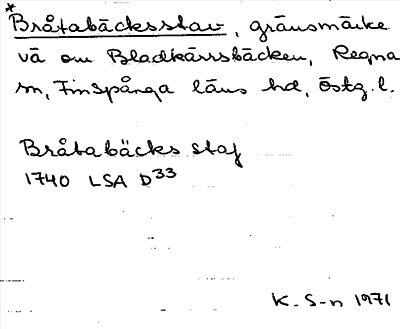 *Bråtabäcksstav, gränsmärke
vä om Bladkärrsbäcken, Regna
sn, Finspånga läns hd, Östg. l.
Bråtabäcks staf
1740 LSA D33
K. S-n 1971